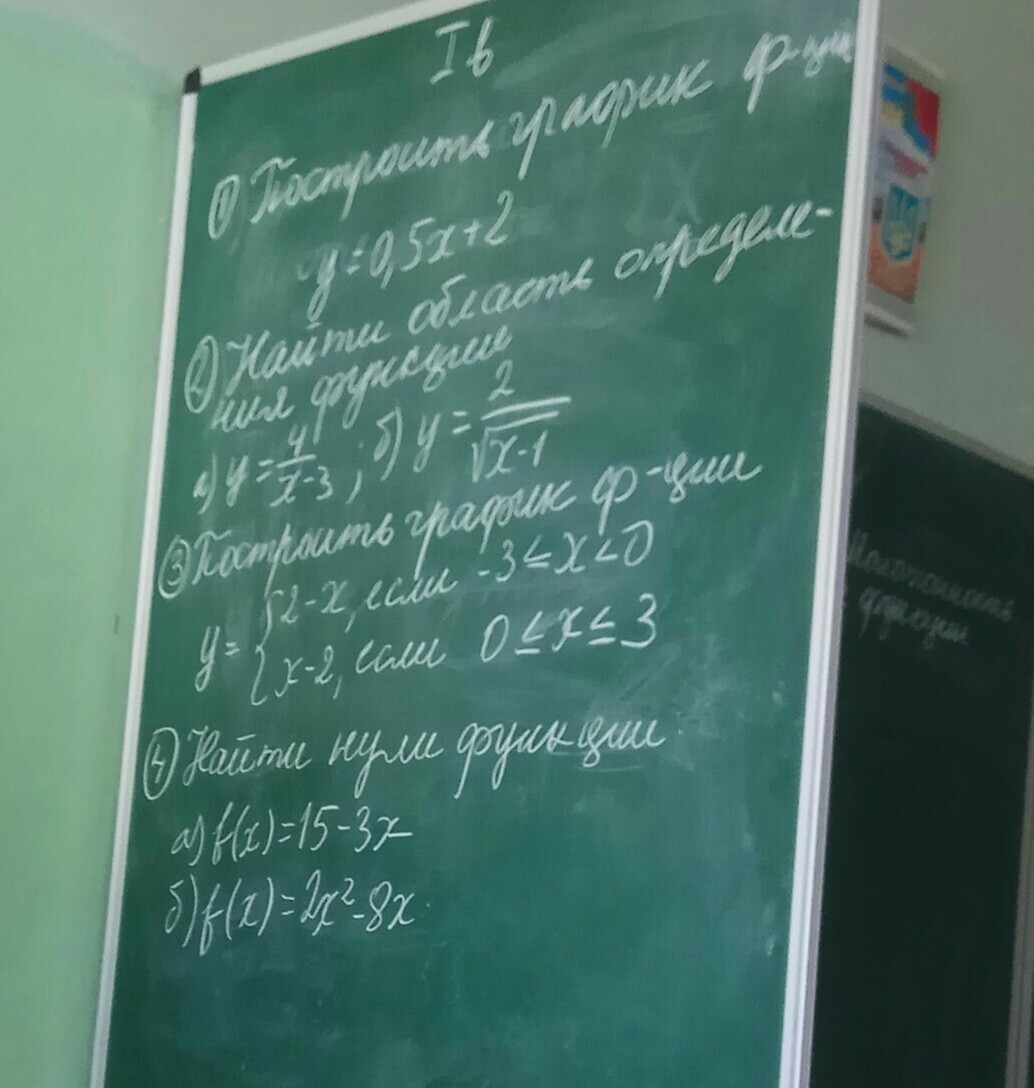 I в
① Построить график ф-ции
y = 0,5x+2
② Найти область определе-
ния функции
а) y = 4/(x-3) ; б) y = 2/√(x-1)
③ Построить график ф-ции
y = { 2-x, если -3 ≤ x < 0
x-2, если 0 ≤ x ≤ 3
④ Найти нули функции
а) f(x)=15-3x
б) f(x)=2x²-8x.
функции